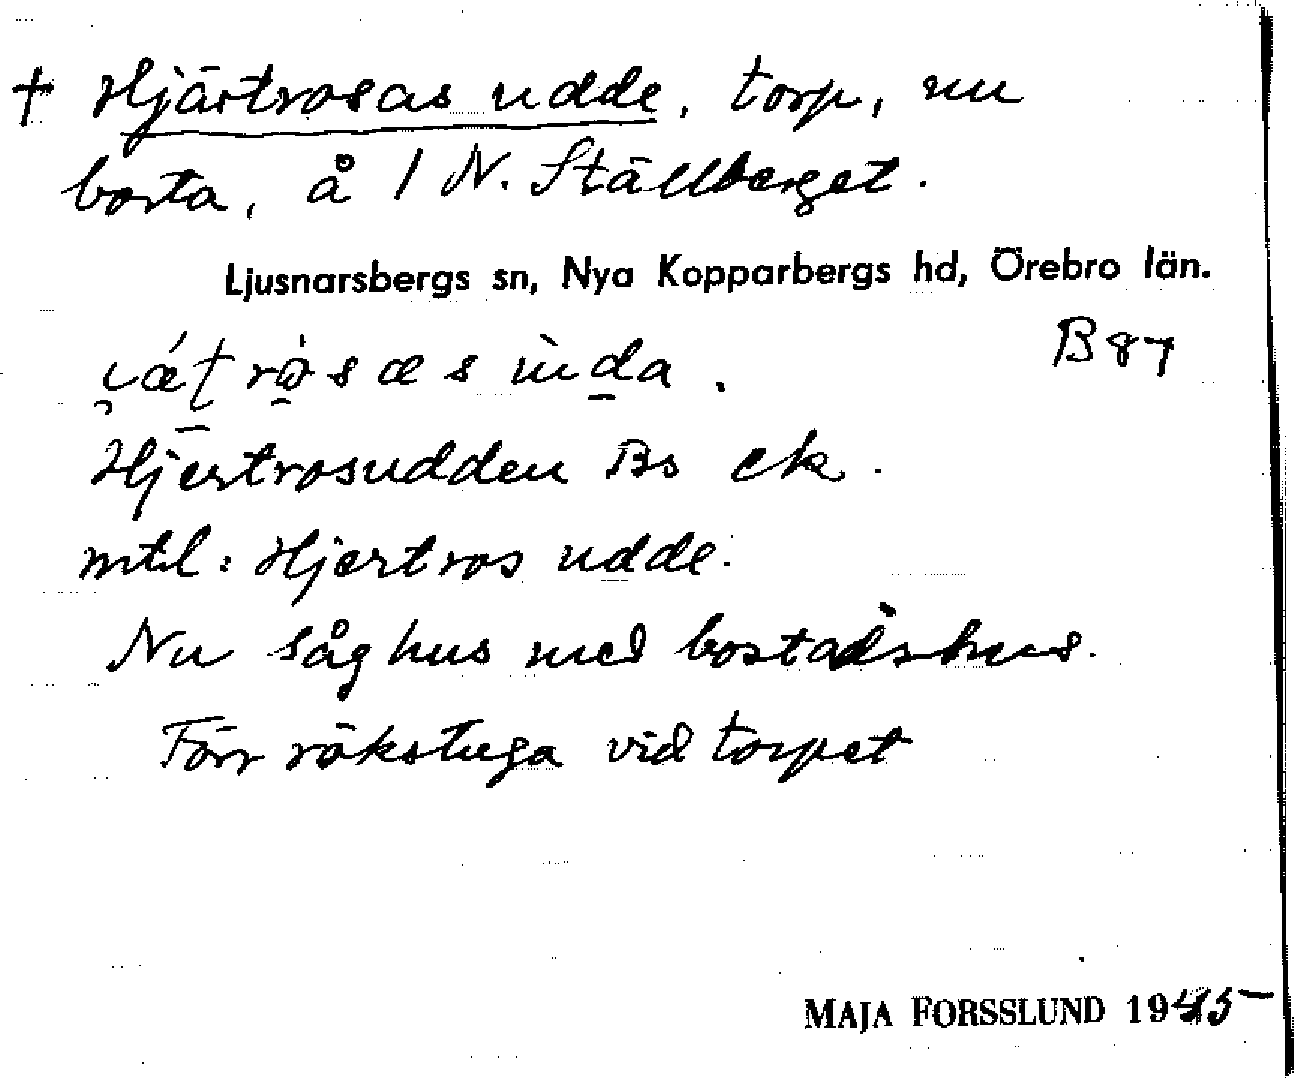 † Hjärtrosas udde, torp, nu
borta, å 1 N. Ställberget.
Ljusnarsbergs sn, Nya Kopparbergs hd, Örebro län.
B 87
Hjertrosudden Bs ek.
mtl: Hjertros udde.
Nu såghus med bostadshus.
Förr rökstuga vid torpet
MAJA FORSSLUND 1945